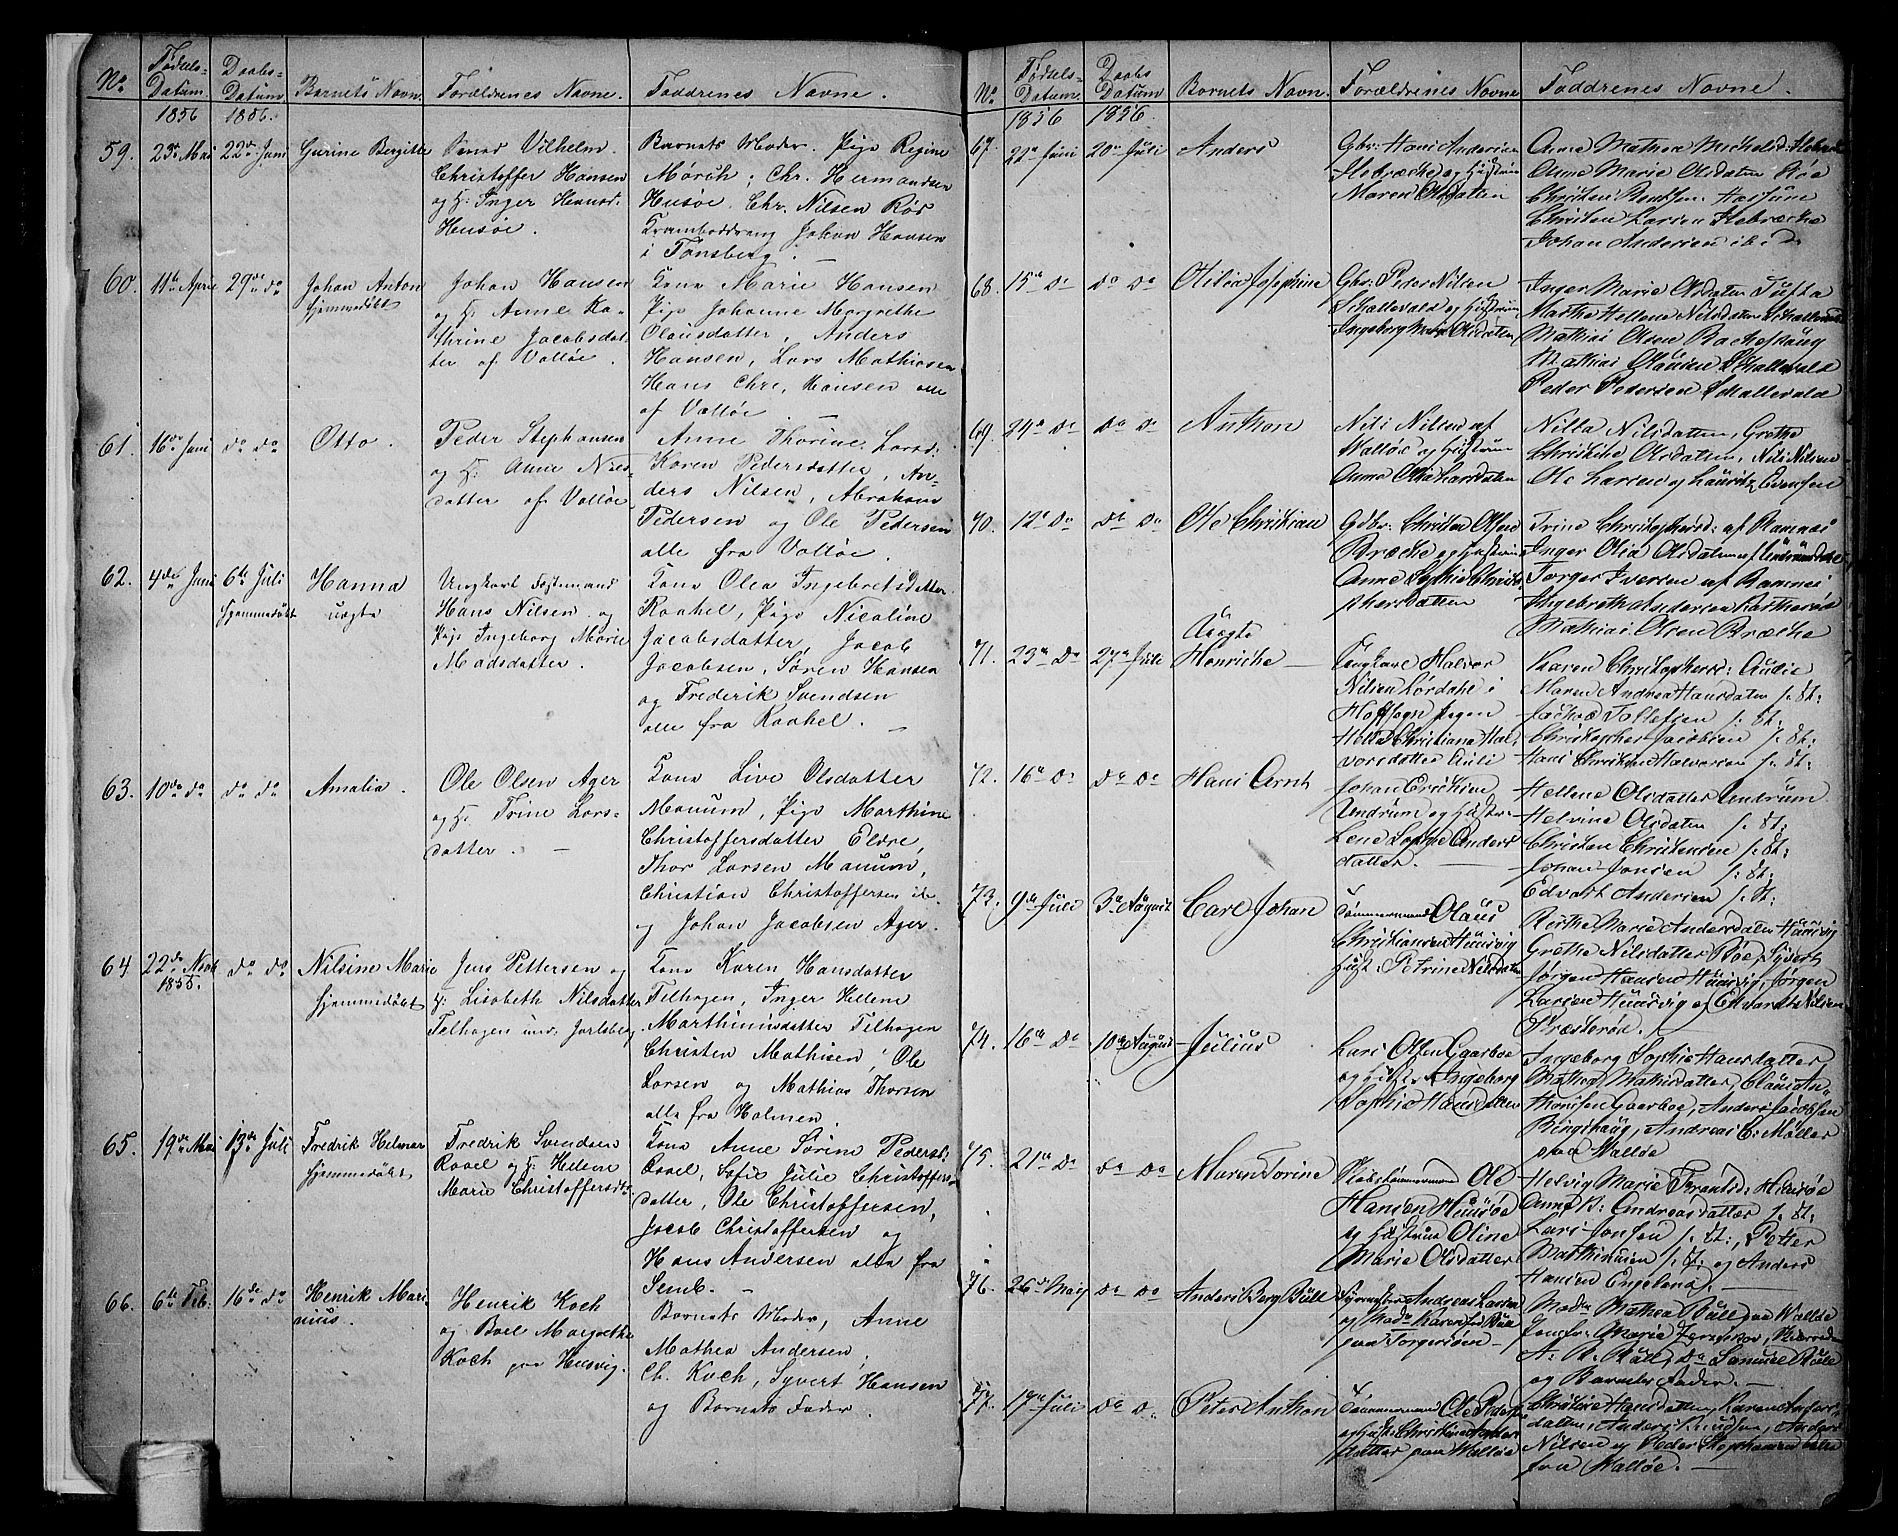 No. Fødsels- Datum. Daabs- Datum Barnets Navn. Forældrenes Navne. Faddrenes Navne.
1856 1856.
59. 23de Mai 22de Juni Gurine Bergitte
Vilhelm
Christoffer Hansen
og H: Inger
Husøe.
Barnets Moder. Pige Regine
Christ. Hermandsen
Husøe. Chr. Nilsen Røs
Kramboddreng Johan Hansen
i Tønsberg.
60. 11te April 29de do Johan Anton
hjemmedøbt
Johan Hansen
og H: Anne Ka-
thrine Jacobsdat-
ter af Valløe.
Kone Marie Hansen
Pige Johanne Margrethe
Olausdatter, Anders
Hansen, Lars Mathiasen
Hans Chr. Hansen alle
af Valløe.
61. 16de Juni do do Otto.
Peder Stephansen
og H: Anne Niels-
datter af Valløe
Anne Thorine Larsd:
Karen Pedersdatter, An-
ders Nilsen, Abraham
Pedersen og Ole Pedersen
alle fra Valløe.
62. 4de Juni 6te Juli Hanna
hjemmedøbt uægte
Ungkarl
Hans Nilsen og
Pige Ingeborg Marie
Madsdatter.
Kone Olea Ingebretsdatter
Raahel, Pige Nicoline
Jacobsdatter, Jacob
Jacobsen, Søren Hansen
og Frederik Svendsen
alle fra Raahel.
63. 10de do do do Amalia.
Ole Olsen Ager
og H: Trine Lars-
datter.
Kone Live Olsdatter
Manum, Pige Marthine
Christoffersdatter Eldre,
Thor Larsen Manum,
Christian Christoffersen
og Johan Jacobsen Ager.
64 22de Novb 1855. do do Nilsine Marie
hjemmedøbt
Jens Pettersen og
H: Lisabeth Nilsdatter
Telhagen und. Jarlsberg.
Kone Karen Hansdatter
Telhagen, Inger Helene
Marthinusdatter Telhagen
Christen Mathisen, Ole
Larsen og Mathias Thorsen
alle fra Holmen.
65. 19de Mai 13de Juli Fredrik Helmar
hjemmedøbt
Fredrik Svendsen
Raael og H: Helene
Marie Christoffersdtr
Kone Anne Sørine Pedersd:
Sofie Julie Christoffers-
datter, Ole Christoffersen,
Jacob Christoffersen og
Hans Andersen alle fra
Semb.
66. 6te Feb. 16de do Henrik Mari-
nius.
Henrik Koch
og Boel Margrethe
Koch paa Husvig.
Barnets Moder, Anne
Mathea Andersen,
Ch. Koch, Syvert Hansen
og Barnets Fader.
No. Fødsels- Datum. Daabs Datum Barnets Navn. Forældrenes Navne Faddrenes Navne.
1856 1856.
67. 22de Juni 20de Juli Anders
Gbr: Hans Andersen
og Hustru
Maren Olsdatter
Anne Mathea Michelsd:
Anne Marie Olsdatter Røe
Christen Larsen
Johan Andersen
68. 15de do do do Josephine
Gbr: Peder Nilsen
Skallevald og Hustru
Ingeborg Marie Olsdatter
Inger Marie Olsdatter Tufta
Marthe Hellene Nilsdatter Skallevald
Mathias Olsen Bacheskaug
Mathias Olausen Skallevald
Peder Pedersen Skallevald
69. 24de do do do Anthon
Nils Nilsen af
Walløe og Hustru
Anne Olea Larsdatter
Nilla Nilsdatter, Grethe
Christine Olsdatter, Nils Nilsen
Ole Larsen og Lauritz Evensen
70. 12te do do do Ole Christian
Gdbr: Christen Olsen
Bræche og Hustru
Anne Sophie Christo-
phersdatter
Trine Christophersd: af Ramnæs
Inger Olia Olsdatter af
Torger Iversen af Ramnæs
Ingebreth Andersen
Mathias Olsen Bræche
Uægte
71. 23de do 27de Juli Henriche
Ungkarl Halvor
Nilsen i
Hoffsogn Pigen
Helle Christiana Hal-
vorsdatter
Karen Christophersd:
Maren Andrea Hansdatter s: St:
Tollefsen s: St:
Christopher Jacobsen s: St:
Hans Christian Halvorsen s: St:
72. 16de do do do Hans Arnt
Johan Erichsen
Undrum og Hustru
Lene Sophie Anders-
datter.
Hellene Olsdatter Undrum
Helvine Olsdatter s: St:
Christen Christensen s: St:
Johan Jonsen s: St:
Edvart Andersen s: St:
73. 9de Juli 3de August Carl Johan
Tømmermand Olaus
Christiansen Huusvig
Hust: Petrine Nilsdatter
Berthe Marie Andersdatter Huusvig
Grethe Nilsdatter Røe, Sivert
Jørgen Hansen Huusvig, Jørgen
Larsen Huusvig og Edvardt Nilsen
Præsterøn.
74. 16de do 10de August Julius
Lars Olsen Gaarboe
og Hustru Ingeborg
Sophie Hansdatter
Ingeborg Sophie Hansdatter
Mathea Mathisdatter, Claus An-
thonisen Gaarboe, Anders Jacobsen
Ringshaug, Andreas C: Møller
paa Walløe
75. 21de do do do Maren Torine
Skibstømmermand Ole
Hansen Huusøe
og Hustrue Oline
Marie Olsdatter
Helvig Marie Frantsd: Huusøe
Anne B: Andreasdatter s: St:
Lars Jonsen s: St:, Petter
Mathisen s: St: og Anders
Hansen Engelena.
76. 26de Maj do do Anders Berg Bull
Styrmand Andreas Larsen
og Mad. Karen fød Bull
paa Torgersøen
Mad. Mathea Bull paa Walløe
Jomfr: Marie
A: B: Bull, do Samuel Bull
og Barnets Fader.
77. 17de Juli do do Peter Anthon
Tømmermand Ole Peders:
og Hust: Christine Anders-
datter paa Walløe
Christine Hansdatter, Karen Anders-
datter, Anders Knudsen, Anders
Nilsen og Peder Stephansen alle
fra Walløe.